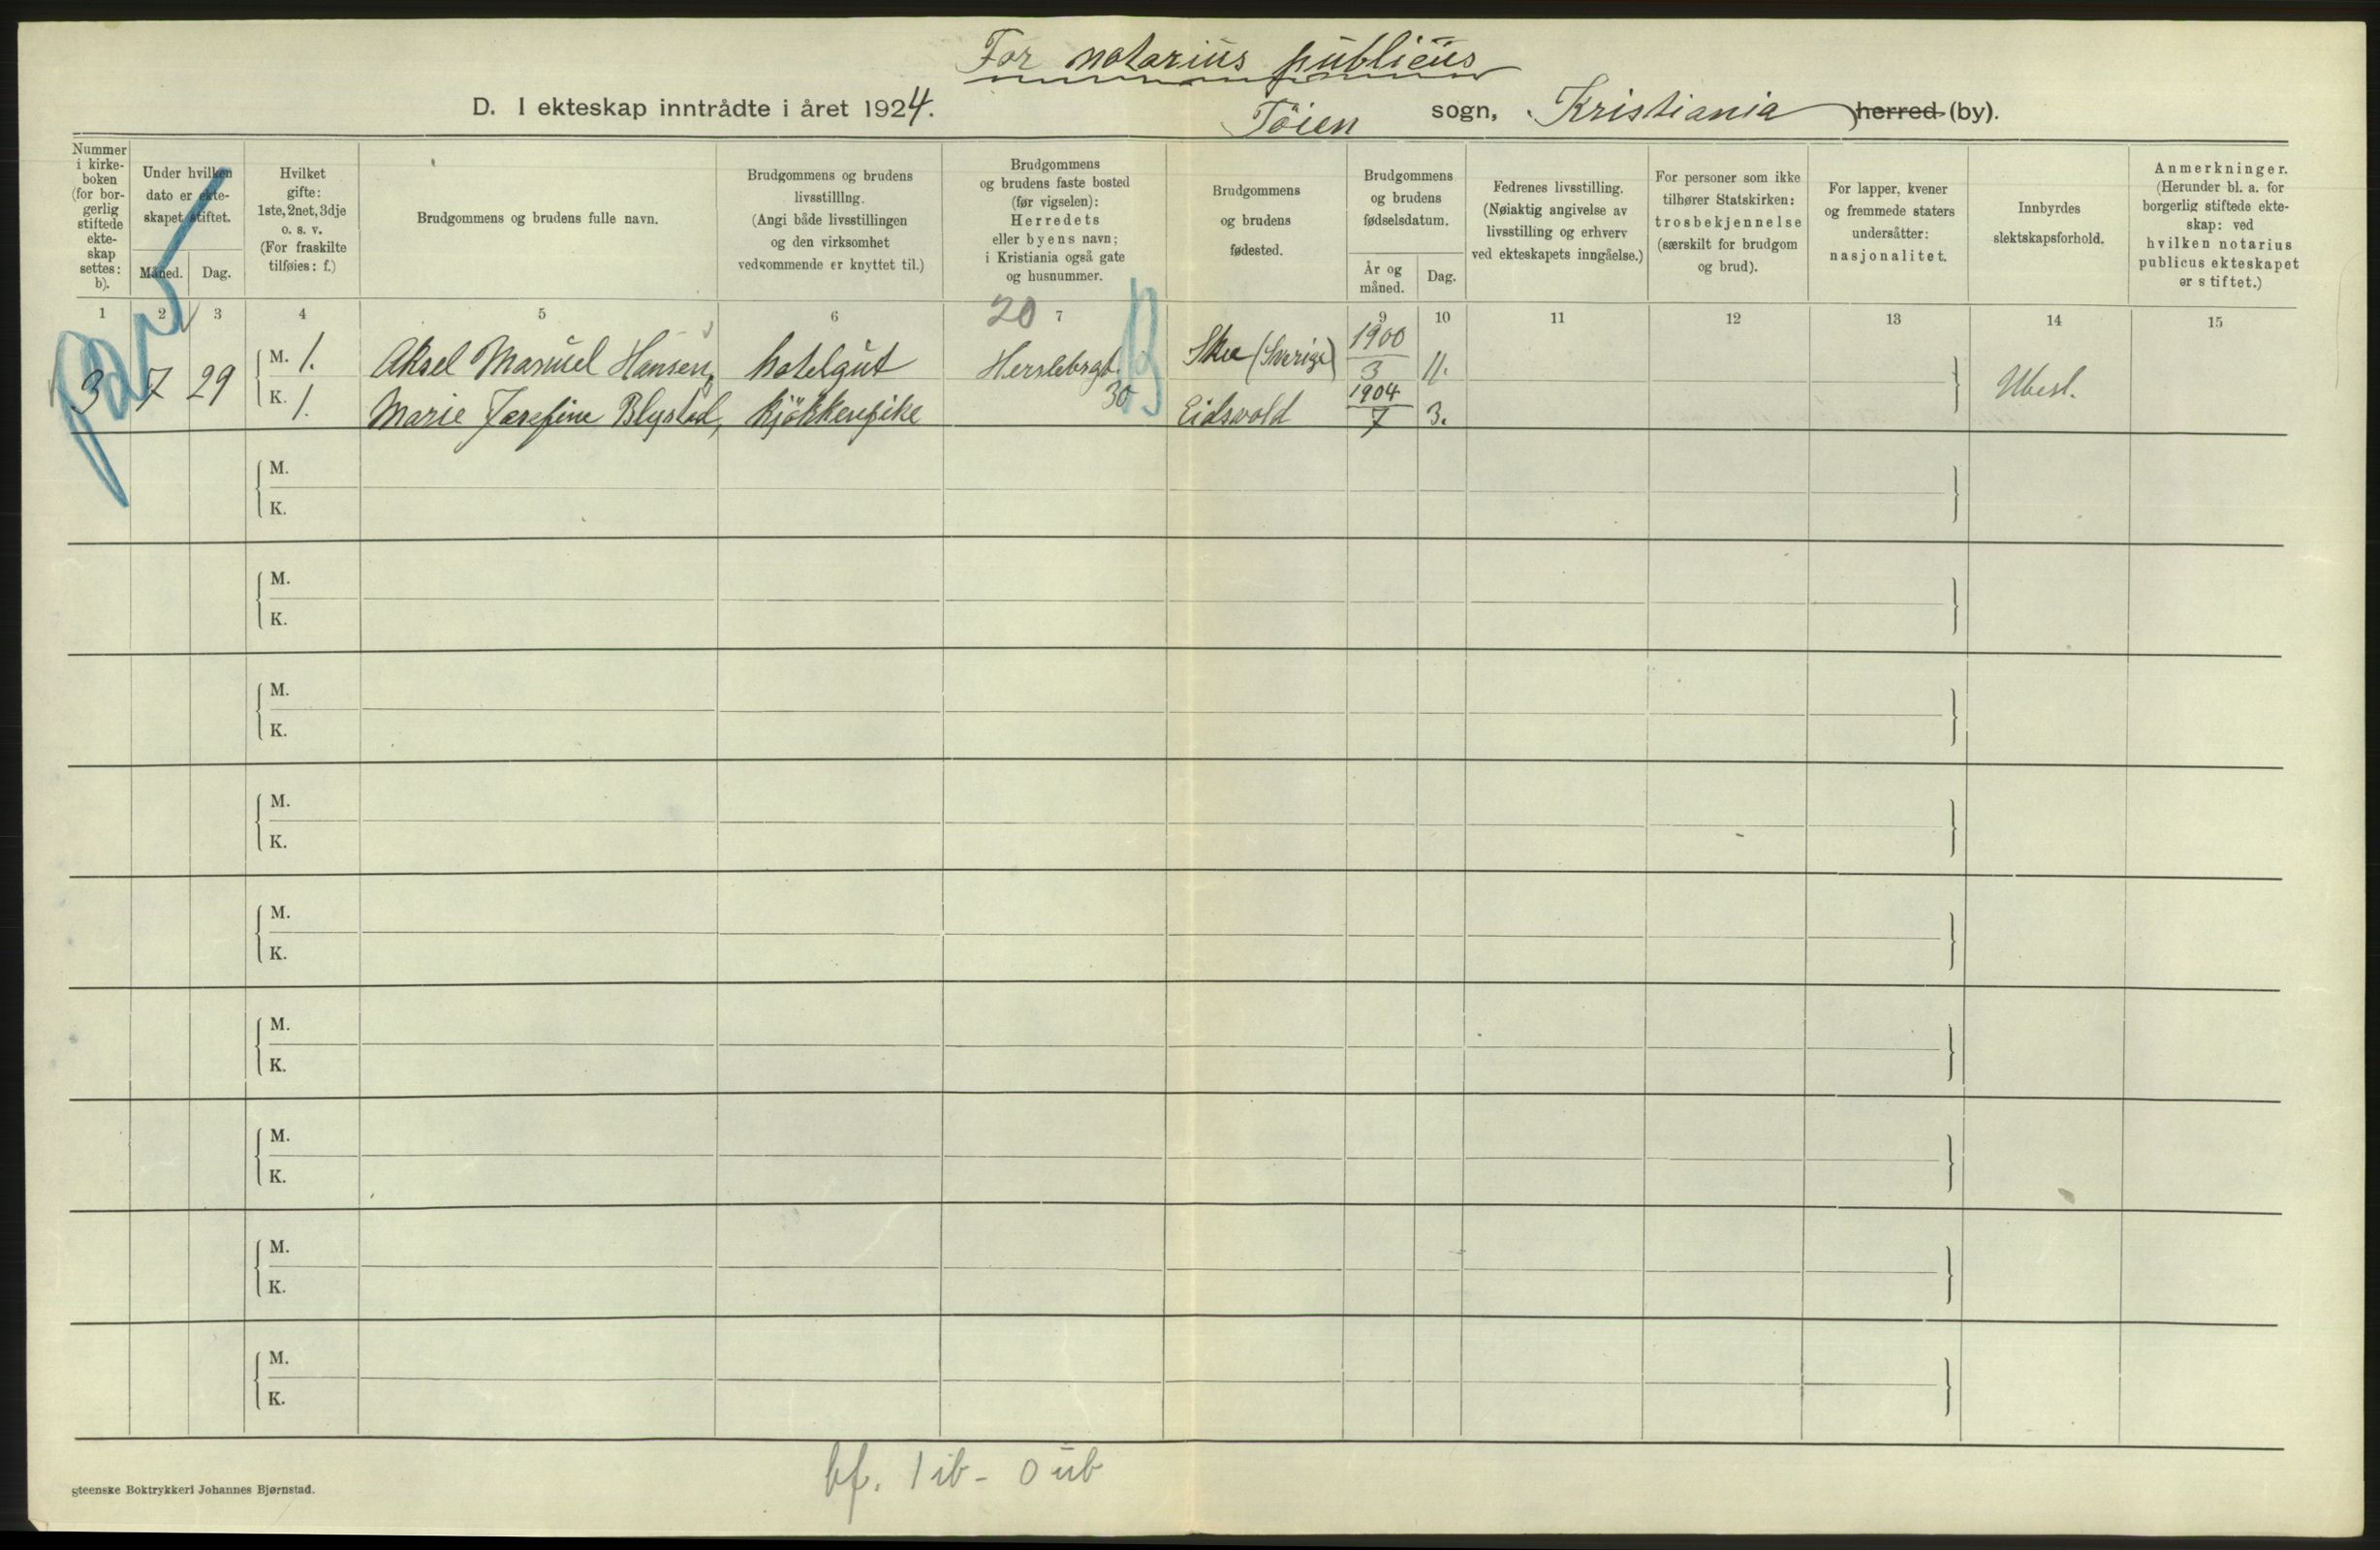 For notarius publicus
D. I ekteskap inntrådte i året 1924.
Töien sogn, Kristiania herred (by).
Nummer
i kirke-
boken
(for bor-
gerlig
stiftede
ekte-
skap
settes:
b).
Under hvilken
dato er ekte-
skapet stiftet.
Måned. Dag.
Hvilket
gifte:
1ste, 2net, 3dje
o. s. v.
(For fraskilte
tilføies: f.)
Brudgommens og brudens fulle navn.
Brudgommens og brudens
livsstilllng.
(Angi både livsstillingen
og den virksomhet
vedkommende er knyttet til.)
Brudgommens
og brudens faste bosted
(før vigselen):
Herredets
eller byens navn;
i Kristiania også gate
og husnummer.
Brudgommens
og brudens
fødested.
Brudgommens
og brudens
fødselsdatum.
År og
måned.
Dag.
Fedrenes livsstilling.
(Nøiaktig angivelse av
livsstilling og erhverv
ved ekteskapets inngåelse.)
For personer som ikke
tilhører Statskirken:
trosbekjennelse
(særskilt for brudgom
og brud).
For lapper, kvener
og fremmede staters
undersåtter:
nasjonalitet.
Innbyrdes
slektskapsforhold.
Anmerkninger.
(Herunder bl. a. for
borgerlig stiftede ekte-
skap: ved
hvilken notarius
publicus ekteskapet
er stiftet.)
1 2 3 4 5 6 7 8 9 10 11 12 13 14 15
20
3 7 29 M. 1. Aksel Manuel Hansen, hotelgut Herslebsgt. Skee (Sverige) 1900 3 11. Ubesl.
K. 1. Marie Josefine Blystad, kjökkenpike 30 Eidsvold 1904 7 3.
M.
K.
M.
K.
M.
K.
M.
K.
M.
K.
M.
K.
M.
K.
M.
K.
M.
K.
bf. 1 ib - 0 ub
gteenske Boktrykkeri Johannes Bjørnstad.